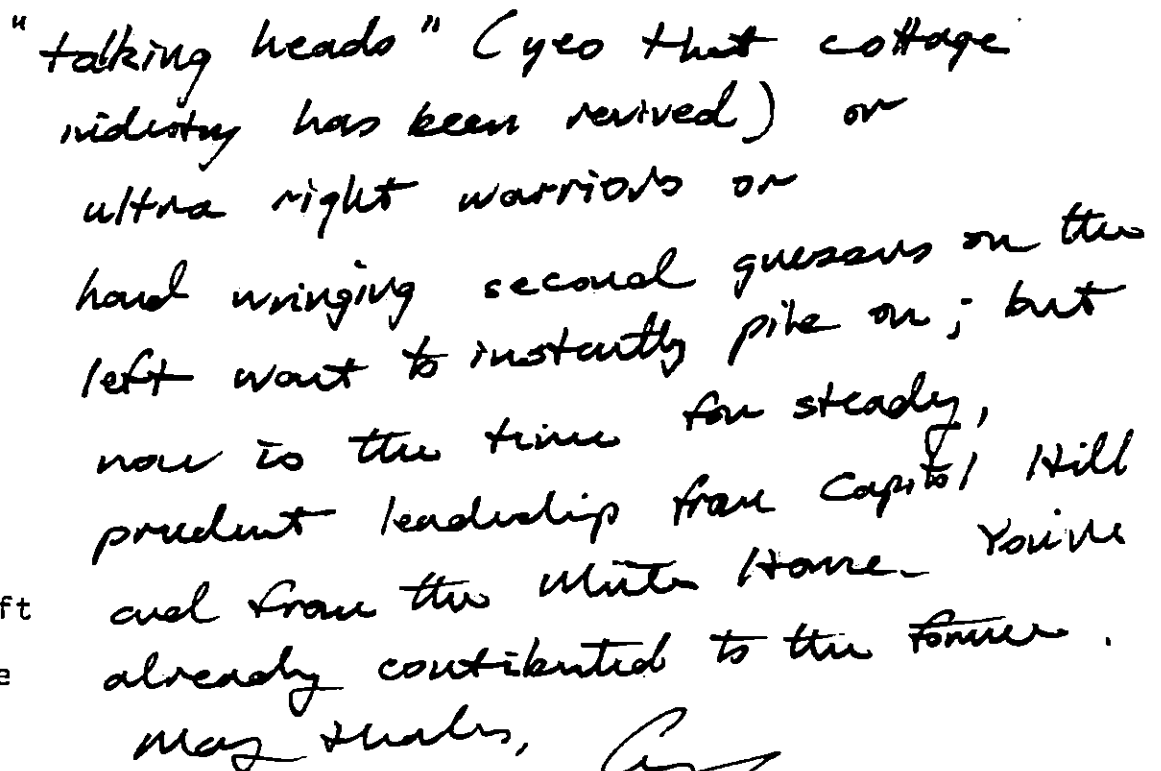 "talking heads" (yes that cottage
industry has been revived) or
ultra right warriors or
hand wringing second guessers on the
left want to instantly pile on; but
now is the time for steady,
prudent leadership from Capitol Hill
and from the White House. You've
already contributed to the former.
Many thanks,
ft
e